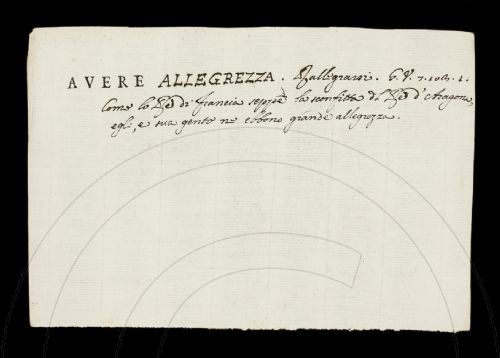 AVERE ALLEGREZZA. Rallegrarsi. G. V. 7. 103. 1.
Come lo Re di Francia seppe la sconfitta del Re d'Aragona,
egli, e sua gente ne ebbono grande allegrezza.